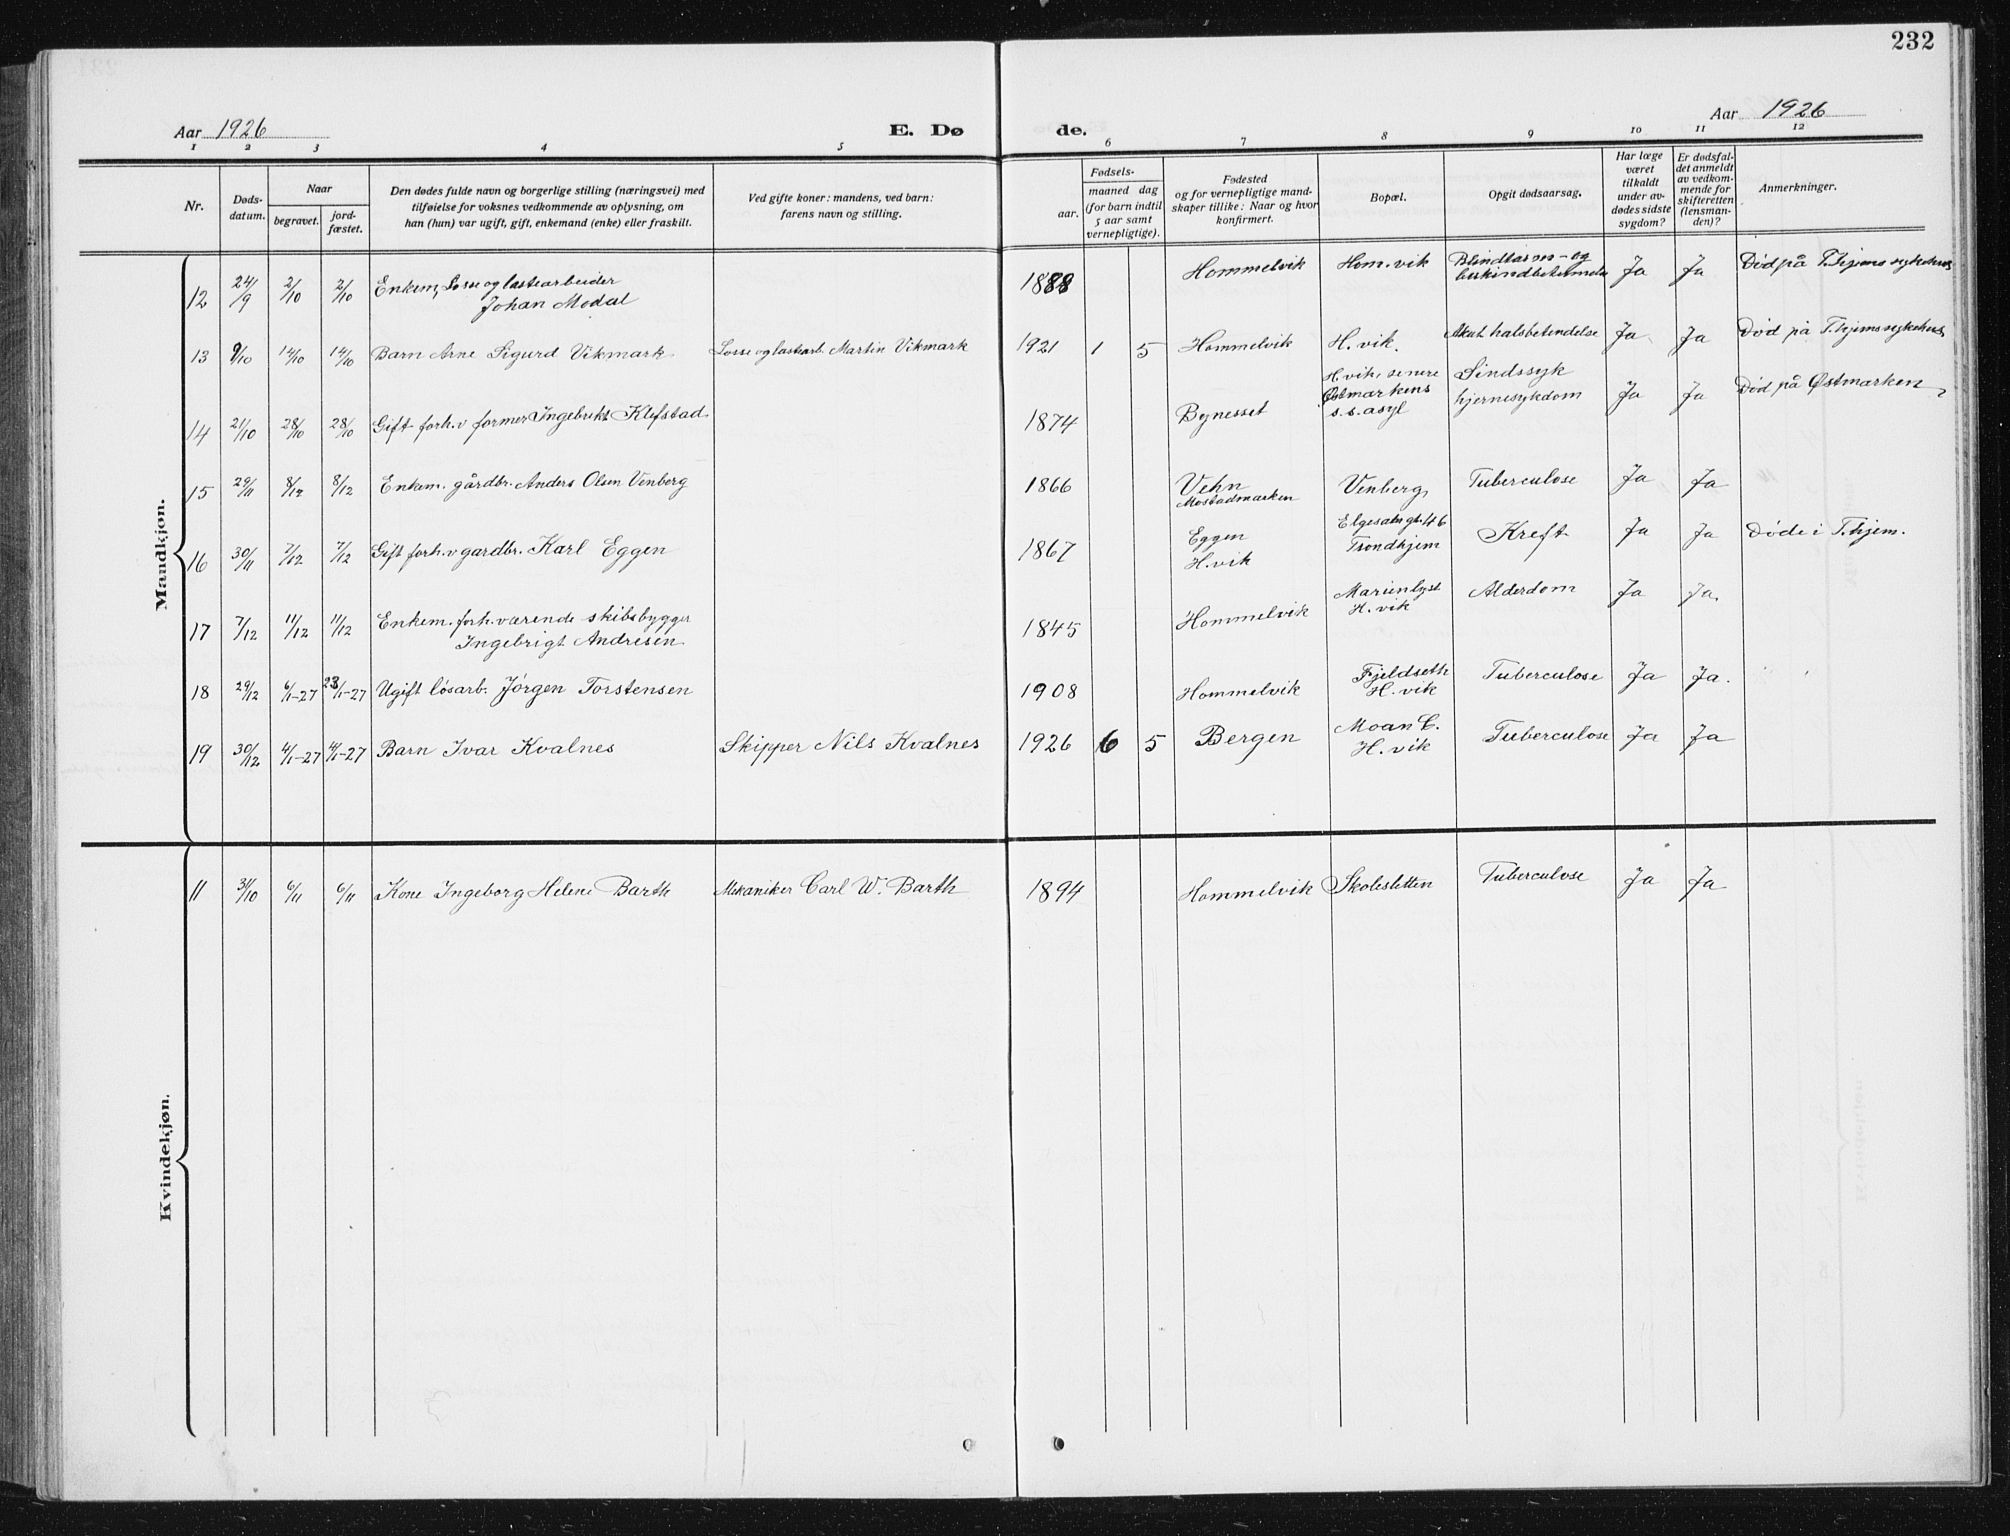 232
Aar 1926
E. Dø
de.
Aar 1926
1 2 3 4 5 6 7 8 9 10 11 12
Nr.
Døds-
datum.
Naar
begravet.
jord-
fæstet.
Den dødes fulde navn og borgerlige stilling (næringsvei) med
tilføielse for voksnes vedkommende av oplysning, om
han (hun) var ugift, gift, enkemand (enke) eller fraskilt.
Ved gifte koner: mandens, ved barn:
farens navn og stilling.
Fødsels-
aar.
maaned dag
(for barn indtil
5 aar samt
vernepligtige).
Fødested
og for vernepligtige mand-
skaper tillike: Naar og hvor
konfirmert.
Bopæl.
Opgit dødsaarsag.
Har læge
været
tilkaldt
under av-
dødes sidste
sygdom?
Er dødsfal-
det anmeldt
av vedkom-
mende for
skifteretten
(lensman-
den)?
Anmerkninger.
Mandkjøn.
12 24/9 2/10 2/10 Enkem, Losse og lastearbeider
Johan Modal
1888 Hommelvik Hom.vik Blindtarms- og
bukhindbetændelse Ja Ja Död på T.hjems sykehus
13 9/10 14/10 14/10 Barn Arne Sigurd Vikmark Losse og lastearb. Martin Vikmark 1921 1 5 Hommelvik H. vik. Akut halsbetendelse Ja Ja Död på T.hjems sykehus
14 21/10 28/10 28/10 Gift forh.v former Ingebrikt Klefstad 1874 Bynesset H.vik, senere
Østmarkens
s.s. asyl
Sindssyk
hjernesykdom Ja Ja Död på Østmarken
15 29/11 8/12 8/12 Enkem. gårdbr. Anders Olsen Venberg 1866 Vehn
Mostadmarken Venberg Tuberculose Ja Ja
16 30/11 7/12 7/12 Gift forh.v gardbr. Karl Eggen 1867 Eggen
H.vik
Elgesætr gt. 46
Trondhjem Kreft Ja Ja Döde i T.hjem.
17 7/12 11/12 11/12 Enkem. forh.værende skibsbygger
Ingebrigt Andresen
1845 Hommelvik Marienlyst
H. vik Alderdom Ja Ja.
18 29/12 6/1-27 23/1-27 Ugift lösarb. Jörgen Torstensen 1908 Hommelvik Fjeldseth
H. vik Tuberculose Ja Ja.
19 30/12 4/1-27 4/1-27 Barn Ivar Kvalnes Skipper Nils Kvalnes 1926 6 5 Bergen Moan C.
H. vik Tuberculose Ja Ja
Kvindekjøn.
11 31/10 6/11 6/11 Kone Ingeborg Helene Barth Mekaniker Carl W. Barth 1894 Hommelvik Skolesletten Tuberculose Ja Ja